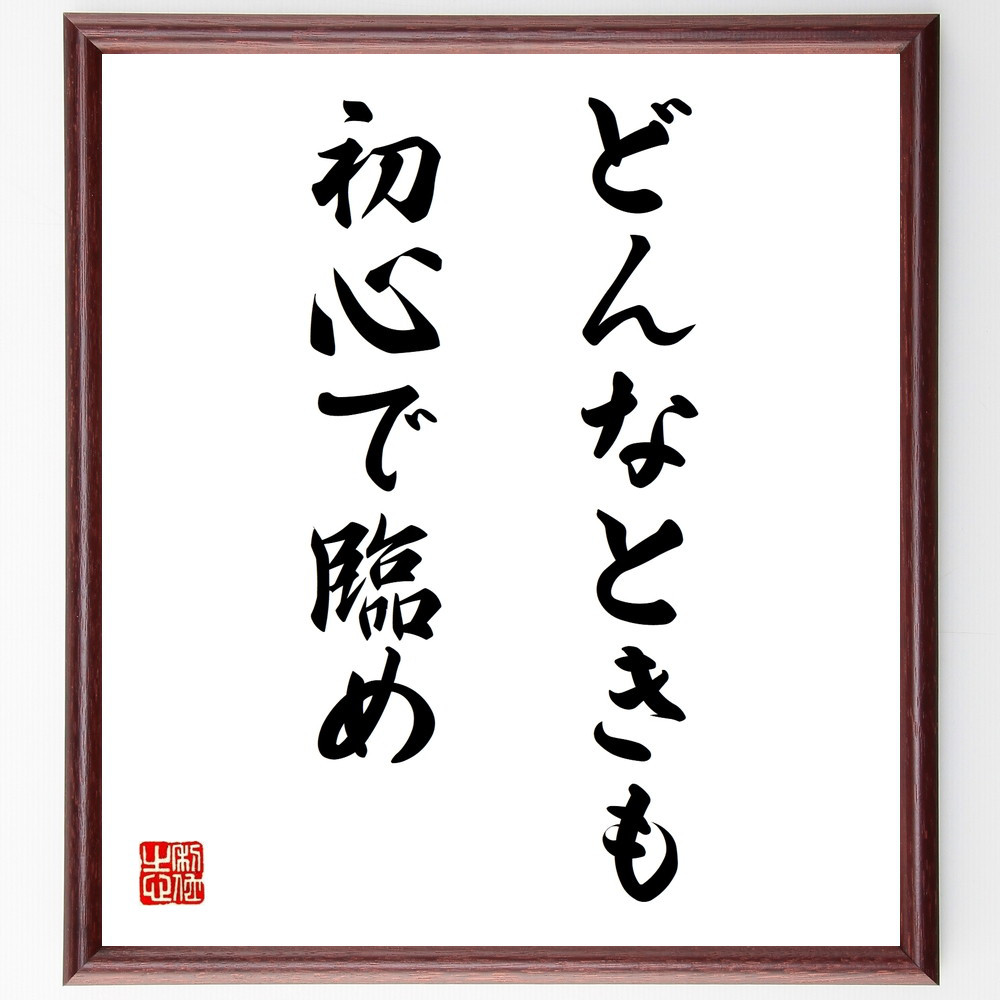 どんなときも
初心で臨め